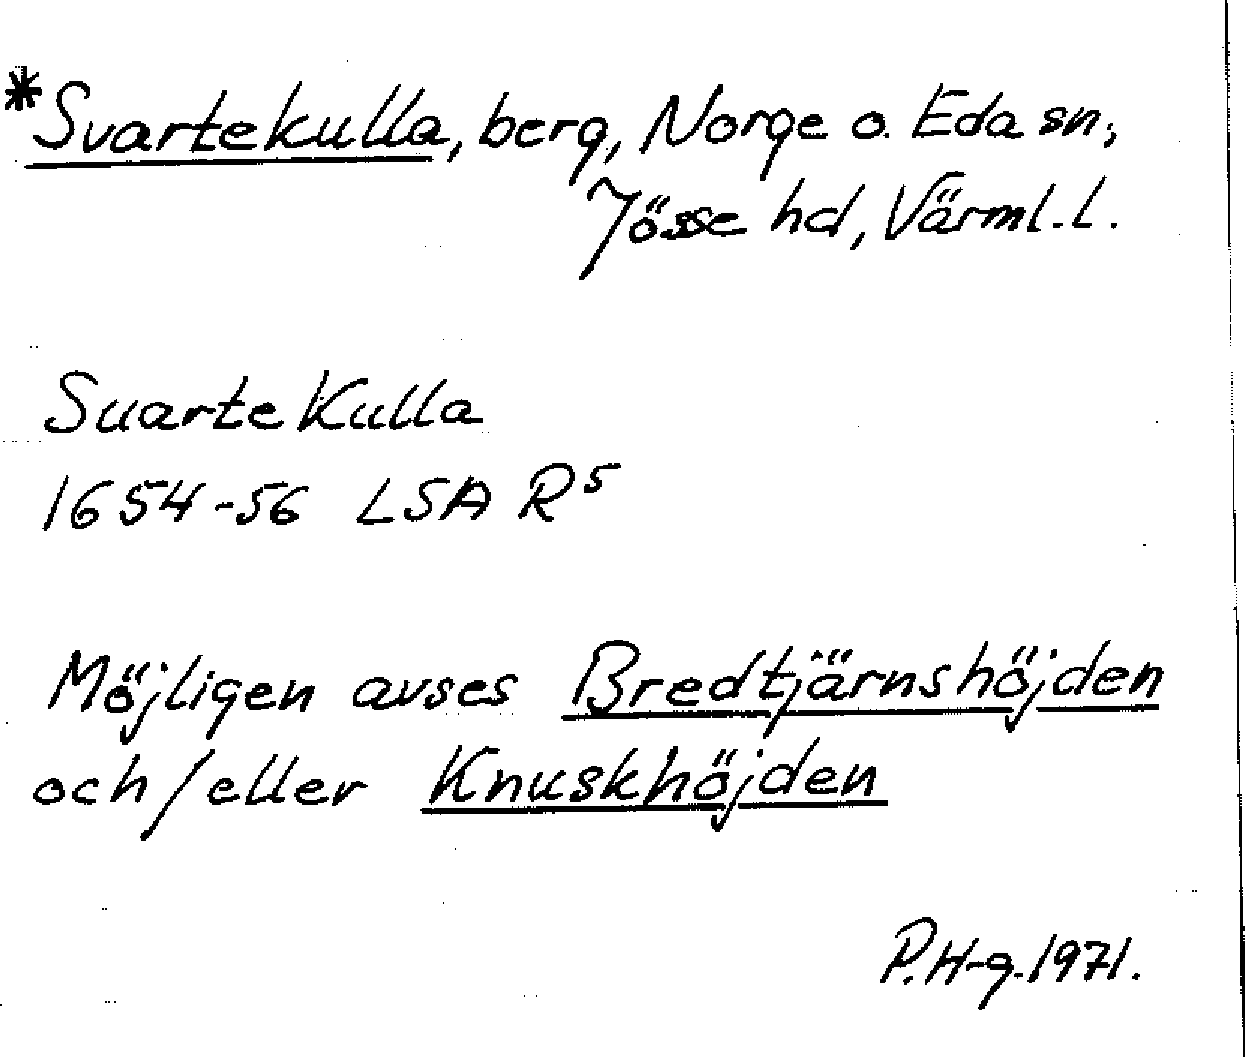 *Svartekulla, berg, Norge o. Eda sn,
Jösse hd, Värml. l.
Suarte Kulla
1654-56 LSA R5
Möjligen avses Bredtjärnshöjden
och/eller Knuskhöjden
P. H-g. 1971.